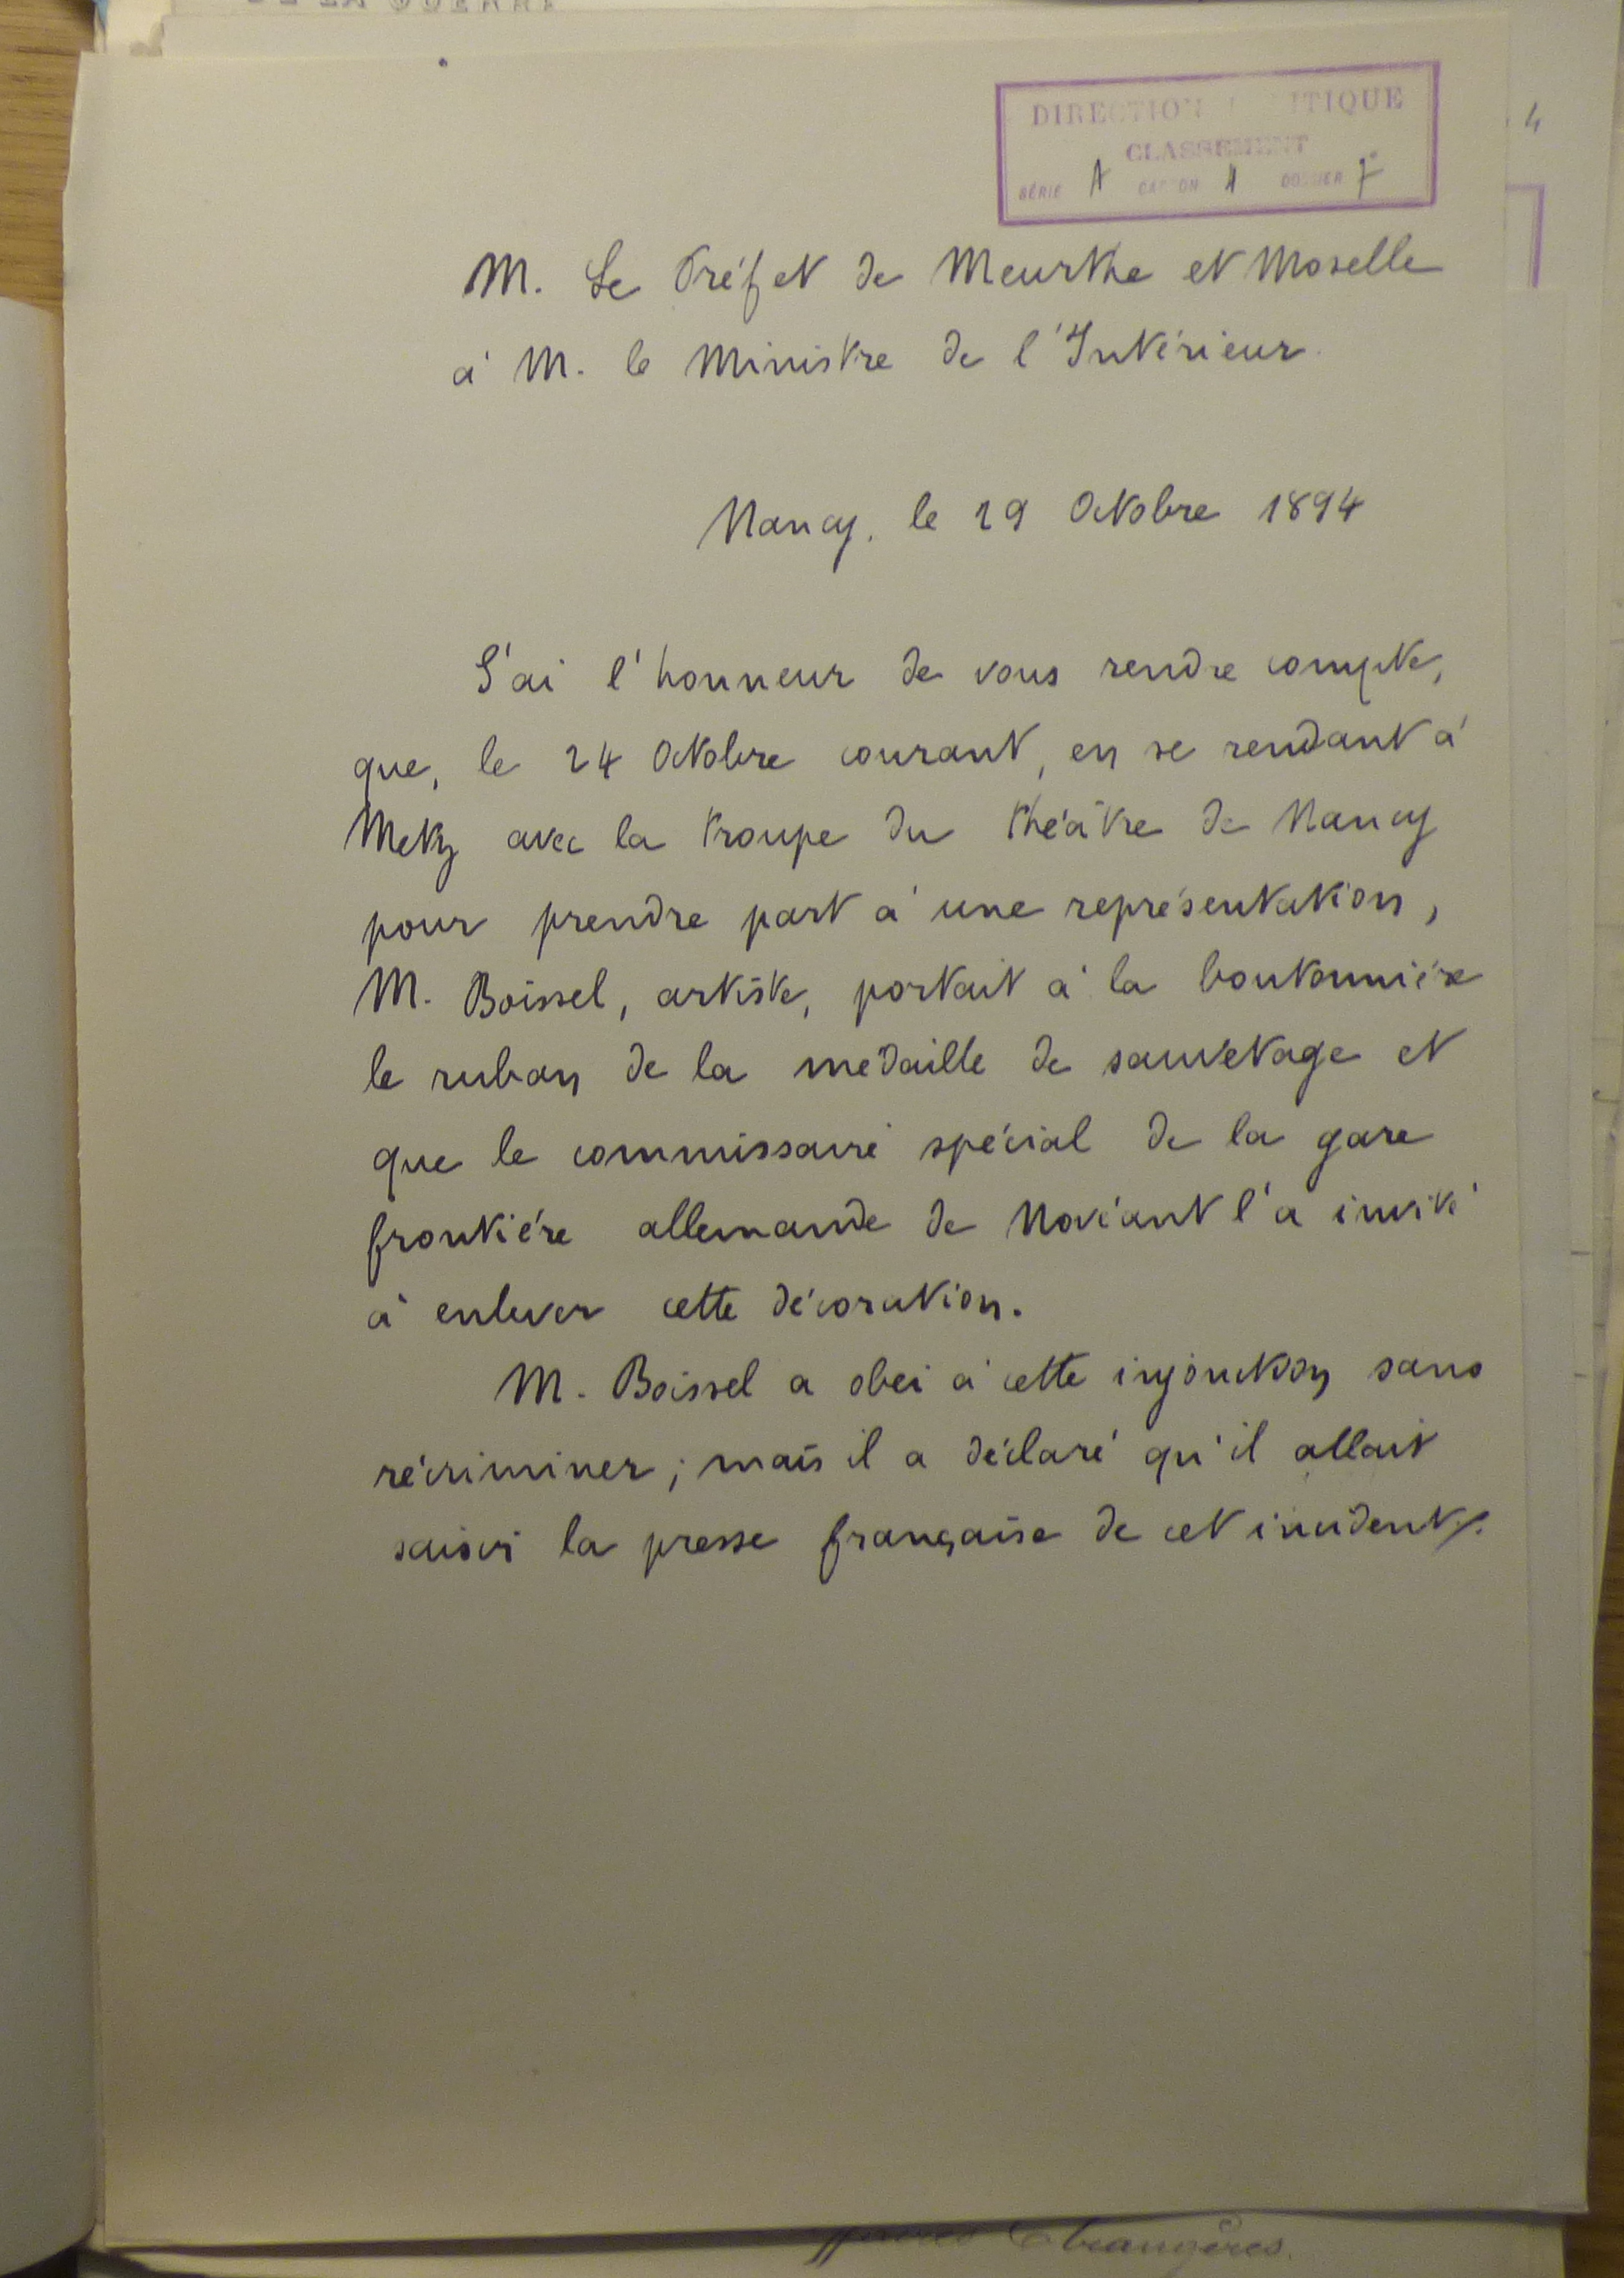 DE LA GUERRE
DIRECTION POLITIQUE
CLASSEMENT
SÉRIE A CARTON 4 DOSSIER 7
4
M. Le Préfet de Meurthe et Moselle
à M. le Ministre de l'Intérieur.
Nancy, le 29 Octobre 1894
J'ai l'honneur de vous rendre compte,
que, le 24 Octobre courant, en se rendant à
Metz avec la troupe du théâtre de Nancy
pour prendre part à une représentation,
M. Boissel, artiste, portait à la boutonnière
le ruban de la médaille de sauvetage et
que le commissaire spécial de la gare
frontière allemande de Novéant l'a invité
à enlever cette décoration.
M. Boissel a obéi à cette injonction sans
récriminer ; mais il a déclaré qu'il allait
saisir la presse française de cet incident.
Etrangères.